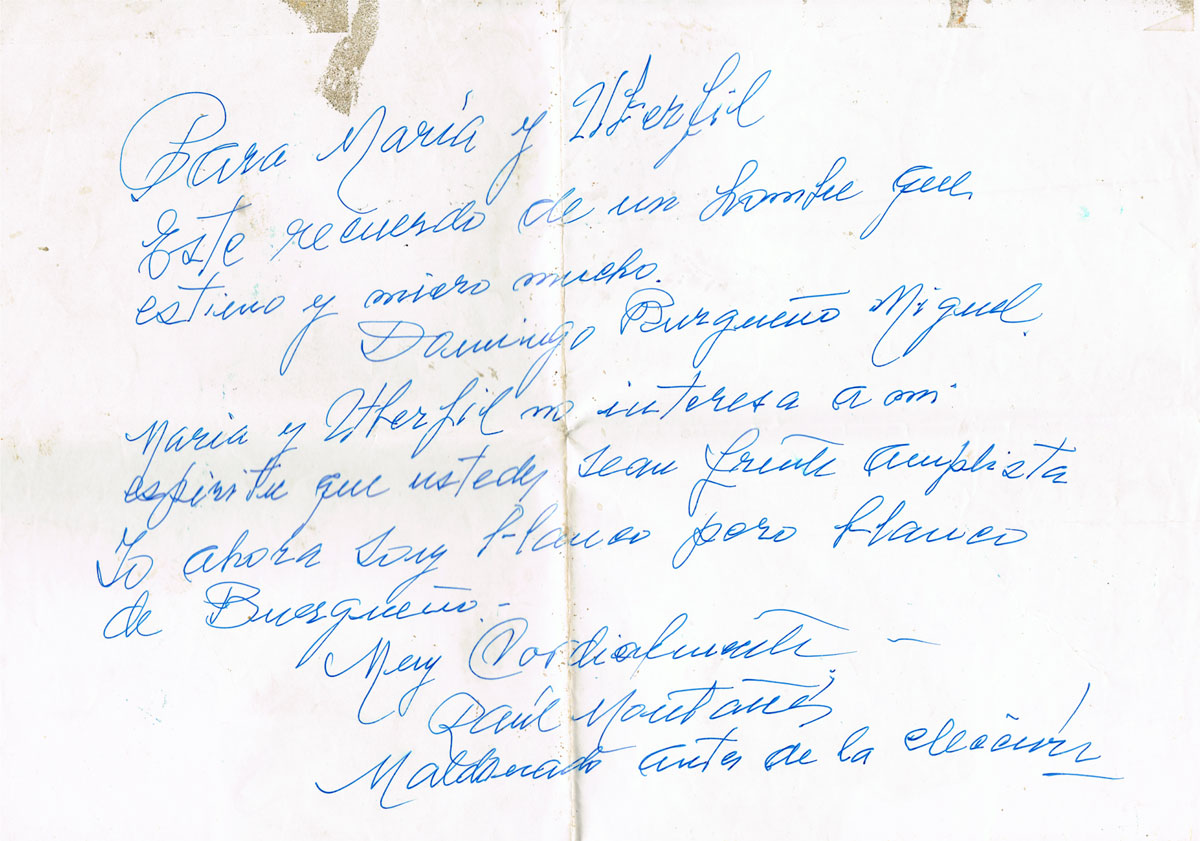 Para María y Utherfil
Este recuerdo de un hombre que
estimo y miro mucho.
Domingo Burgueño Miguel.
Maria y Utherfil no interesa a mi
espiritu que ustedes sean frente amplista
Yo ahora soy blanco pero blanco
de Burgueño.-
Muy Cordialmente. -
Raúl Montañés
Maldonado antes de la elección